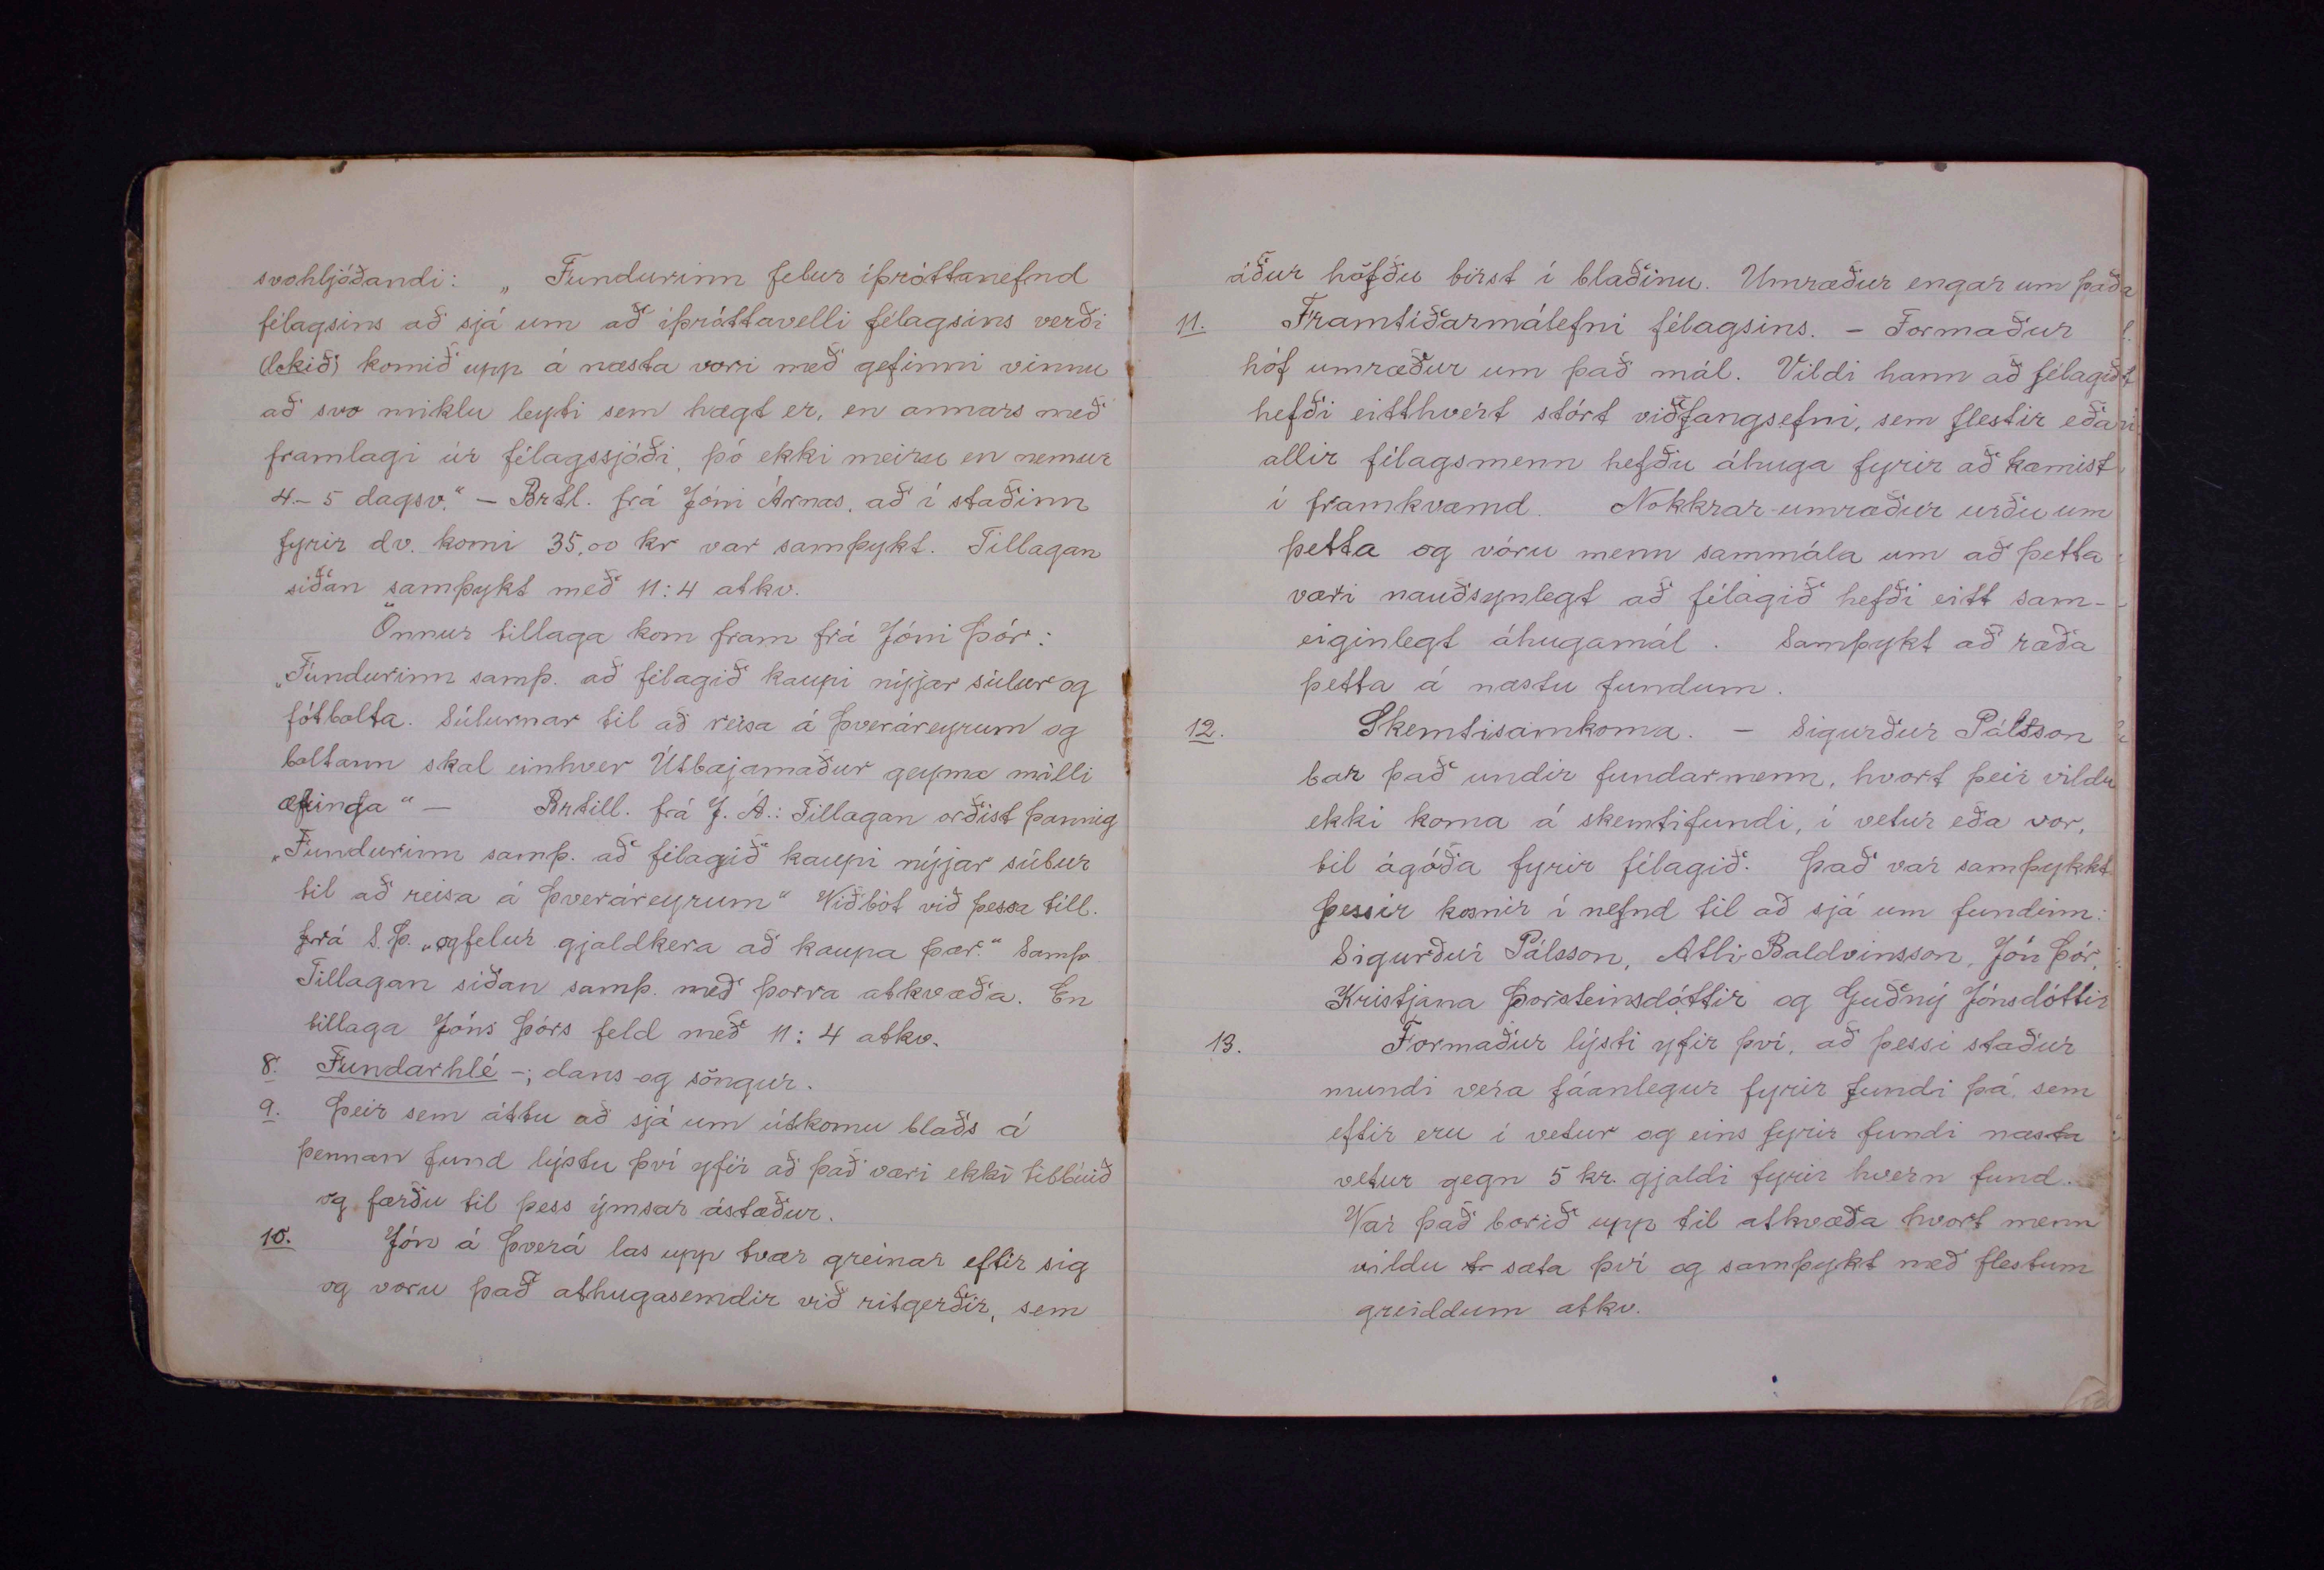 svohljóðandi: „Fundurinn felur íþróttanefnd
félagsins að sjá um að íþróttavelli félagsins verði
(lokið) komið upp á næsta vori með gefinni vinnu
að svo miklu leyti sem hægt er, en annars með
framlagi úr félagssjóði, þó ekki meiru en nemur
4-5 dagsv." – Brtl. frá Jóni Árnas. að í staðinn
fyrir dv. komi 35,00 kr var samþykt. Tillagan
síðan samþykt með 11:4 atkv.
Önnur tillaga kom fram frá Jóni Þór:
„Fundurinn samþ. að félagið kaupi nýjar súlur og
fótbolta. Súlurnar til að reisa á Þveráreyrum og
boltann skal einhver Útbæjamaður geyma milli
æfinga" – Brtill. frá J. Á.: Tillagan orðist þannig
„Fundurinn samþ. að félagið kaupi nýjar súlur
til að reisa á Þveráreyrum" Viðbót við þessa till.
frá S.Þ. „og felur gjaldkera að kaupa þær." Samþ
Tillagan síðan samþ. með þorra atkvæða. En
tillaga Jóns Þórs feld með 11:4 atkv.
8. Fundarhlé -; dans og söngur.
9. Þeir sem áttu að sjá um útkomu blaðs á
þennan fund lýstu því yfir að það væri ekki tilbúið
og færðu til þess ýmsar ástæður.
10. Jón á Þverá las upp tvær greinar eftir sig
og voru það athugasemdir við ritgerðir, sem
áður höfðu birst í blaðinu. Umræður engar um það
11. Framtíðarmálefni félagsins. – Formaður
hóf umræður um það mál. Vildi hann að félagið
hefði eitthvert stórt viðfangsefni, sem flestir eða
allir félagsmenn hefðu áhuga fyrir að kæmist
í framkvæmd. Nokkrar umræður urðu um
þetta og vóru menn sammála um að þetta
væri nauðsynlegt að félagið hefði eitt sam-
eiginlegt áhugamál. Samþykt að ræða
þetta á næstu fundum.
12. Skemtisamkoma. – Sigurður Pálsson
bar það undir fundarmenn, hvort þeir vildu
ekki koma á skemtifundi, í vetur eða vor,
til ágóða fyrir félagið. Það var samþykkt
Þessir kosnir í nefnd til að sjá um fundinn:
Sigurður Pálsson, Atli Baldvinsson, Jón Þór,
Kristjana Þorsteinsdóttir og Guðný Jónsdóttir
13. Formaður lýsti yfir því, að þessi staður
mundi vera fáanlegur fyrir fundi þá, sem
eftir eru í vetur og eins fyrir fundi næsta
vetur gegn 5 kr. gjaldi fyrir hvern fund.
Var það borið upp til atkvæða hvort menn
vildu t sæta því og samþykt með flestum
greiddum atkv.